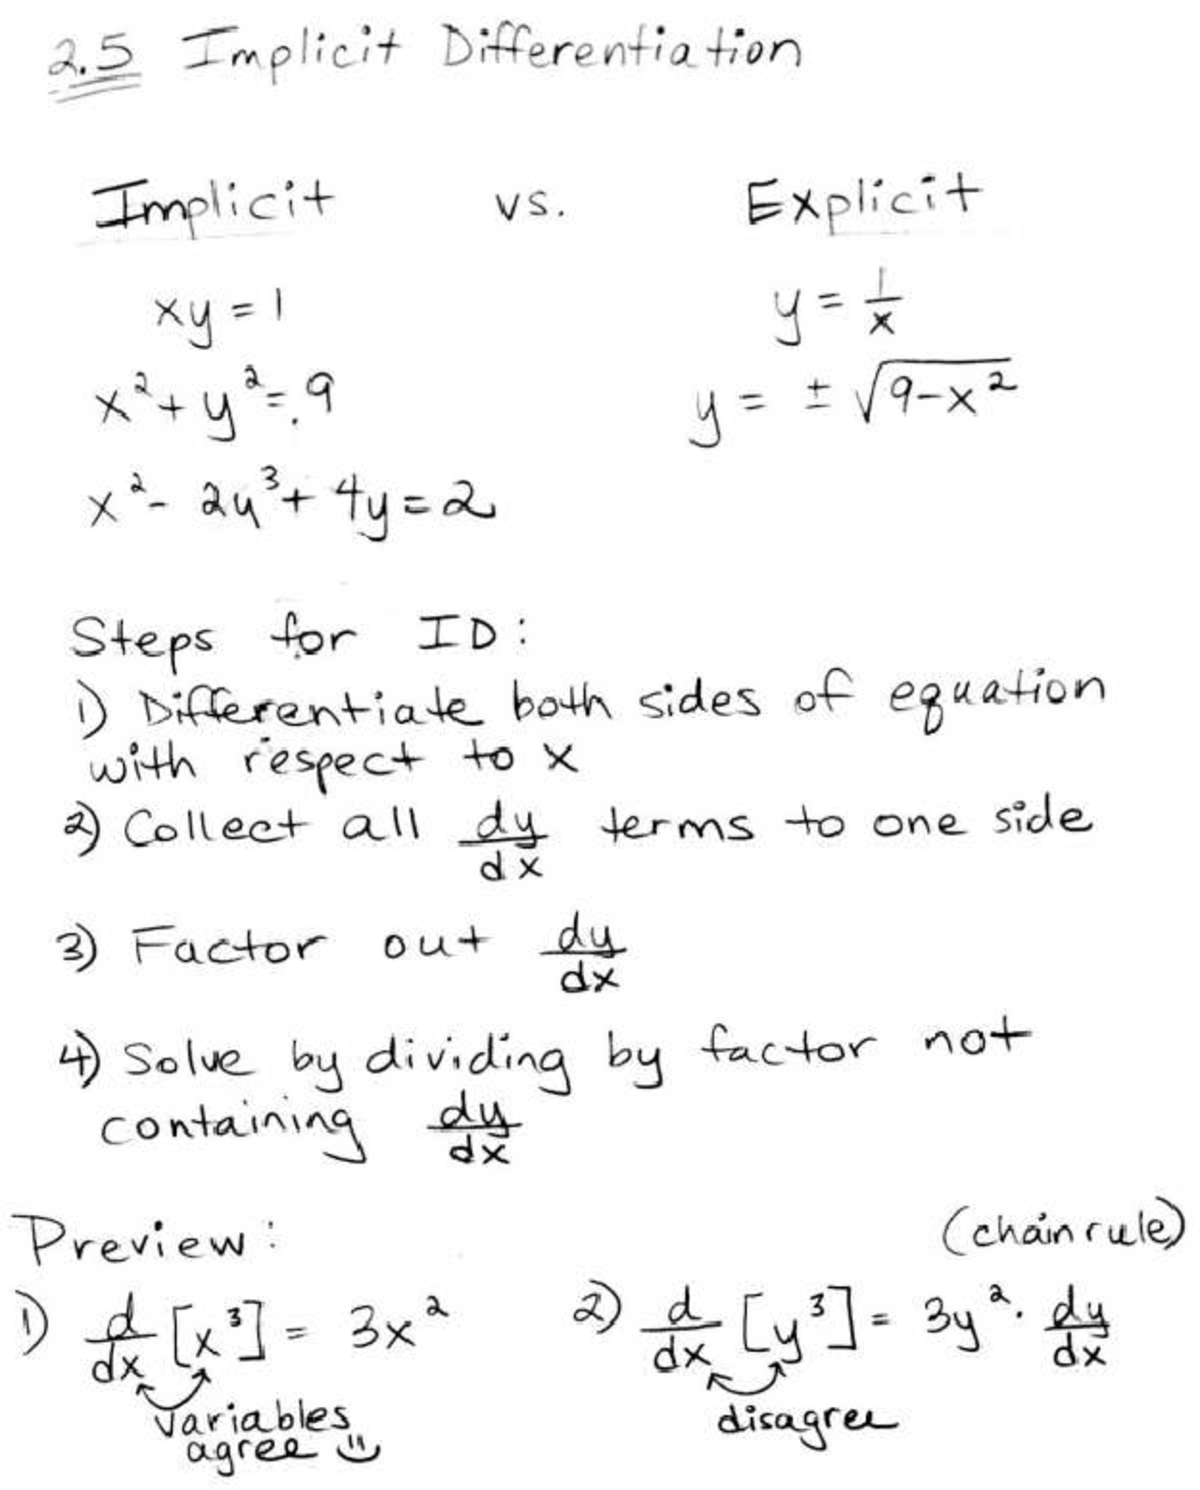 2.5 Implicit Differentiation
Implicit vs. Explicit
xy = 1 y = 1/x
x² + y² = 9 y = ± √(9-x²)
x² - 2y³ + 4y = 2
Steps for ID:
1) Differentiate both sides of equation
with respect to x
2) Collect all dy/dx terms to one side
3) Factor out dy/dx
4) Solve by dividing by factor not
containing dy/dx
Preview: (chain rule)
1) d/dx [x³] = 3x² 2) d/dx [y³] = 3y² · dy/dx
variables disagree
agree